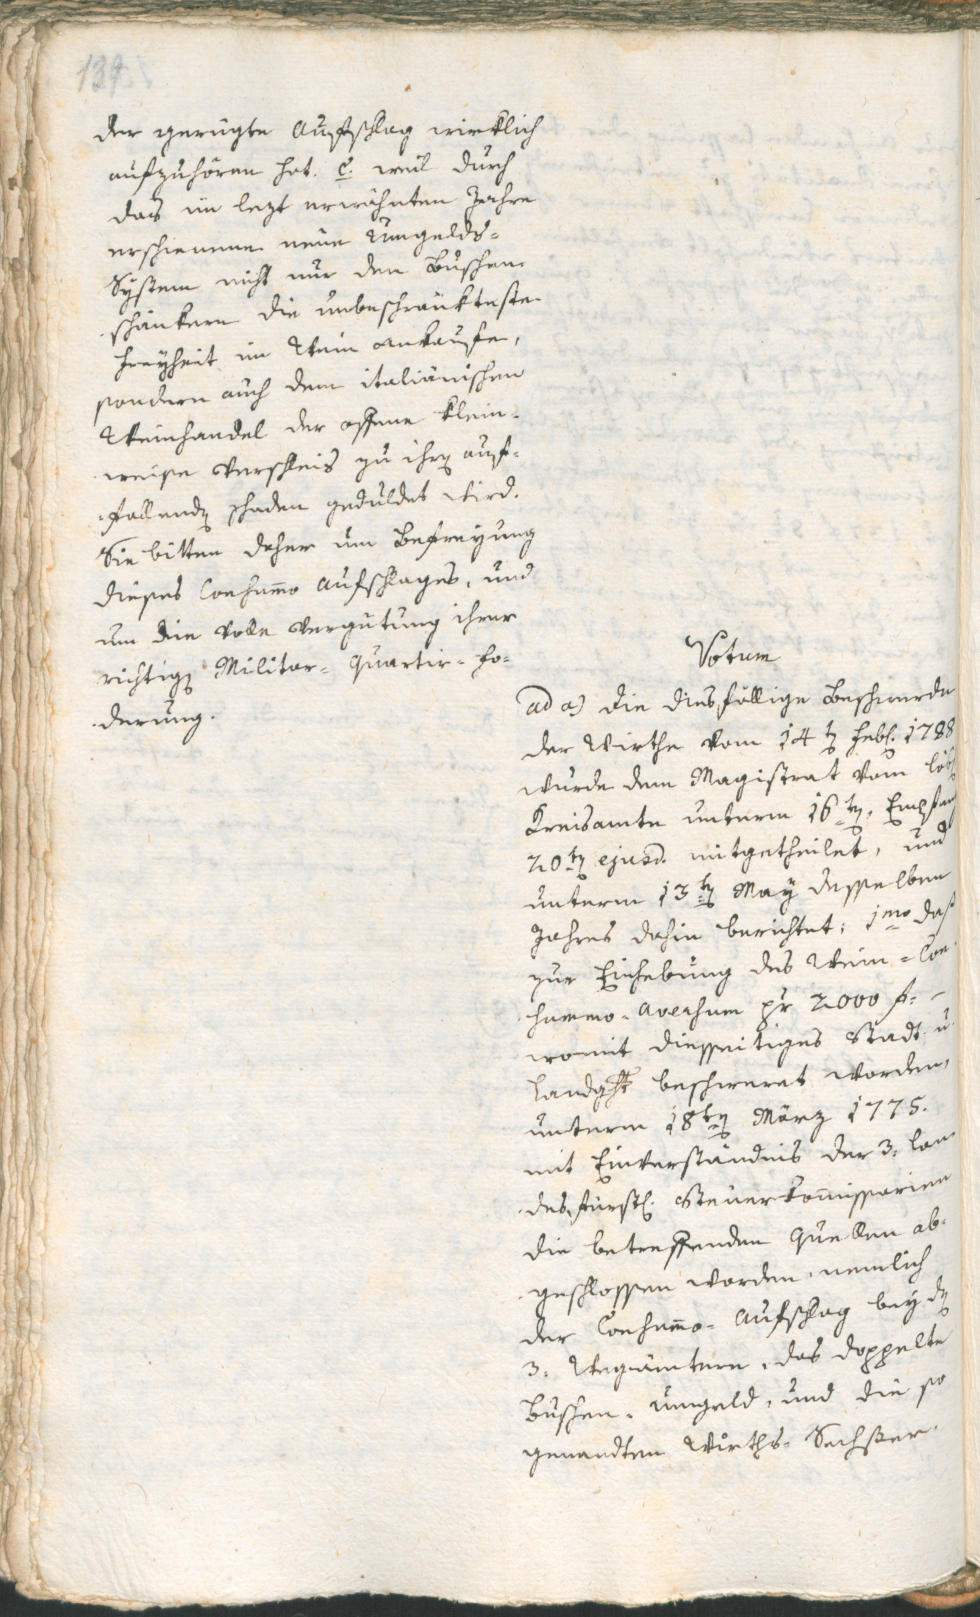 139
der gerügte Aufschlag wirklich
aufzuhören hat. C. weil durch
das im lezt erwähnten Jahre
erschienene neüe Umgelds-
System nicht nur den Buschen-
schänkern die unbeschränkteste
Freyheit im Wein ankaufe,
sondern auch dem italiänischen
Weinhandel der offene klein-
weise Verschleis zu ihrem auf-
fallenden schaden geduldet wird.
Sie bitten daher um Befreyung
dieses Consumo Aufschlages, und
um die volle Vergütung ihrer
richtigen Militar- Quartir- fo-
derung.
Votum
ad a) die diesfällige Beschwerde
der Wirthe vom 14ten Feb. 1788
wurde dem Magistrat vom löbl
Kreisamte unterm 16ten, Empfang
20ten ejusd. mitgetheilet, und
unterm 13ten May desselben
Jahres dahin berichtet: 1mo daß
zur Einhebung des Wein-Con-
summo-Aversum pr 2000 f. –
womit diesseitiges Stadt u.
Landght beschweret worden,
unterm 18ten März 1775.
mit Einverständnis der 3. lan-
desfürstl. Steuerkommissarien
die betreffenden Quellen ab-
geschlossen worden, nemlich
der Consumo- Aufschlag bey den
3. Wegämtern, das doppelte
Buschen- umgeld, und die so
genandten Wirths- Sechster-